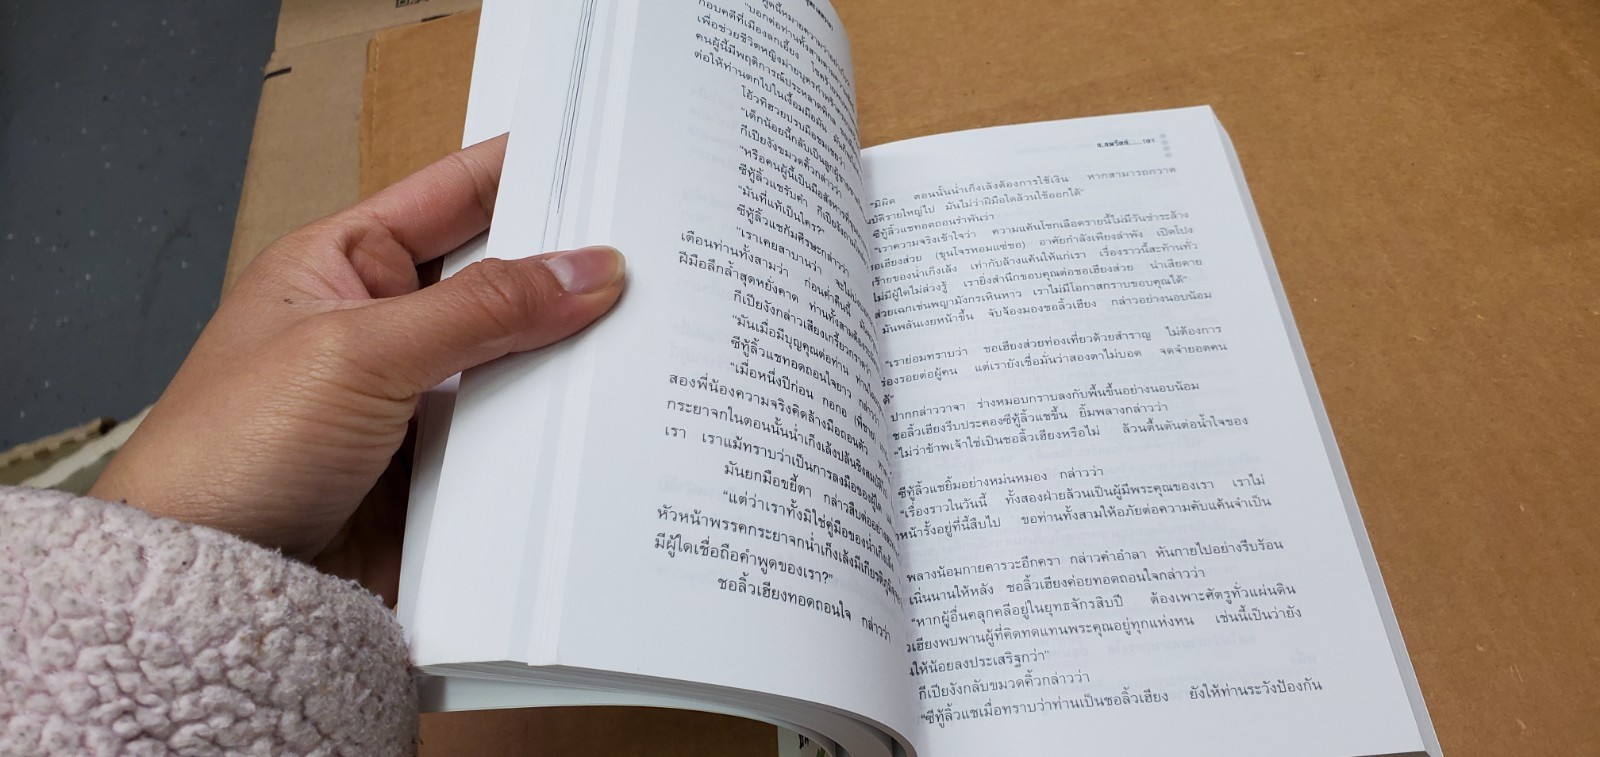 "บอกต่อท่านทั้งสาม
กอบคดีที่เมืองลกเอี้ยง
เพื่อช่วยชีวิตหญิงม่ายบุตรกำพร้า
คนผู้นี้มีพฤติการณ์ประหลาด
ต่อให้ท่านตกไปในเงื้อมมือมัน
โอ้วทิฮวยปรบมือชมเชยว่า
"เด็กน้อยนี้กลับเป็นลูกผู้ชาย
กีเปียงังขมวดคิ้วกล่าวว่า
"หรือคนผู้นี้เป็นมือสังหาร
ซีทู้ลิ้วแซรับคำ กีเปียงังถาม
"มันที่แท้เป็นใคร?"
ซีทู้ลิ้วแซก้มศีรษะกล่าวว่า
"เราเคยสาบานว่า จะไม่
เตือนท่านทั้งสามว่า ก่อนค่ำคืนนี้
ฝีมือลึกล้ำสุดหยั่งคาด ท่านทั้งสามต้อง
กีเปียงังกล่าวเสียงเกรี้ยวกราดว่า
"มันเมื่อมีบุญคุณต่อท่าน
ซีทู้ลิ้วแซทอดถอนใจยาว กล่าวว่า
"เมื่อหนึ่งปีก่อน กอกอ (พี่ชาย)
สองพี่น้องความจริงคิดล้างมือถอนตัว
กระยาจกในตอนนั้นน่ำเก็งเล้งปล้นชิง
เรา เราแม้ทราบว่าเป็นการลงมือของผู้ใด
มันยกมือขยี้ตา กล่าวสืบต่ออย่าง
"แต่ว่าเราทั้งมิใช่คู่มือของน่ำเก็งเล้ง
หัวหน้าพรรคกระยาจกน่ำเก็งเล้งมีเกียรติภูมิ
มีผู้ใดเชื่อถือคำพูดของเรา?"
ชอลิ้วเฮียงทอดถอนใจ กล่าวว่า
ว.ณพรัตน์......
"มิผิด ตอนนั้นน่ำเก็งเล้งต้องการใช้เงิน หากสามารถกวาด
บัติรายใหญ่ไป มันไม่ว่าฝีมือใดล้วนใช้ออกได้"
ซีทู้ลิ้วแซทอดถอนรำพันว่า
"เราความจริงเข้าใจว่า ความแค้นโชกเลือดรายนี้ไม่มีวันชำระล้าง
ชอเฮียงส่วย (ขุนโจรหอมแซ่ชอ) อาศัยกำลังเพียงลำพัง เปิดโปง
ร้ายของน่ำเก็งเล้ง เท่ากับล้างแค้นให้แก่เรา เรื่องราวนี้สะท้านทั่ว
ไม่มีผู้ใดไม่ล่วงรู้ เรายิ่งสำนึกขอบคุณต่อชอเฮียงส่วย น่าเสียดาย
ส่วยเฉกเช่นพญามังกรเหินหาว เราไม่มีโอกาสกราบขอบคุณได้"
มันพลันเงยหน้าขึ้น จับจ้องมองชอลิ้วเฮียง กล่าวอย่างนอบน้อม
"เราย่อมทราบว่า ชอเฮียงส่วยท่องเที่ยวด้วยสำราญ ไม่ต้องการ
ร่องรอยต่อผู้คน แต่เรายังเชื่อมั่นว่าสองตาไม่บอด จดจำยอดคน
ได้"
ปากกล่าววาจา ร่างหมอบกราบลงกับพื้นขึ้นอย่างนอบน้อม
ชอลิ้วเฮียงรีบประคองซีทู้ลิ้วแซขึ้น ยิ้มพลางกล่าวว่า
"ไม่ว่าข้าพเจ้าใช่เป็นชอลิ้วเฮียงหรือไม่ ล้วนตื้นตันต่อน้ำใจของ
ซีทู้ลิ้วแซยิ้มอย่างหม่นหมอง กล่าวว่า
"เรื่องราวในวันนี้ ทั้งสองฝ่ายล้วนเป็นผู้มีพระคุณของเรา เราไม่
หน้ารั้งอยู่ที่นี้สืบไป ขอท่านทั้งสามให้อภัยต่อความคับแค้นจำเป็น
พลางน้อมกายคารวะอีกครา กล่าวคำอำลา หันกายไปอย่างรีบร้อน
เนิ่นนานให้หลัง ชอลิ้วเฮียงค่อยทอดถอนใจกล่าวว่า
"หากผู้อื่นคลุกคลีอยู่ในยุทธจักรสิบปี ต้องเพาะศัตรูทั่วแผ่นดิน
วเฮียงพบพานผู้ที่คิดทดแทนพระคุณอยู่ทุกแห่งหน เช่นนี้เป็นว่ายัง
นให้น้อยลงประเสริฐกว่า"
กีเปียงังกลับขมวดคิ้วกล่าวว่า
"ซีทู้ลิ้วแซเมื่อทราบว่าท่านเป็นชอลิ้วเฮียง ยังให้ท่านระวังป้องกัน